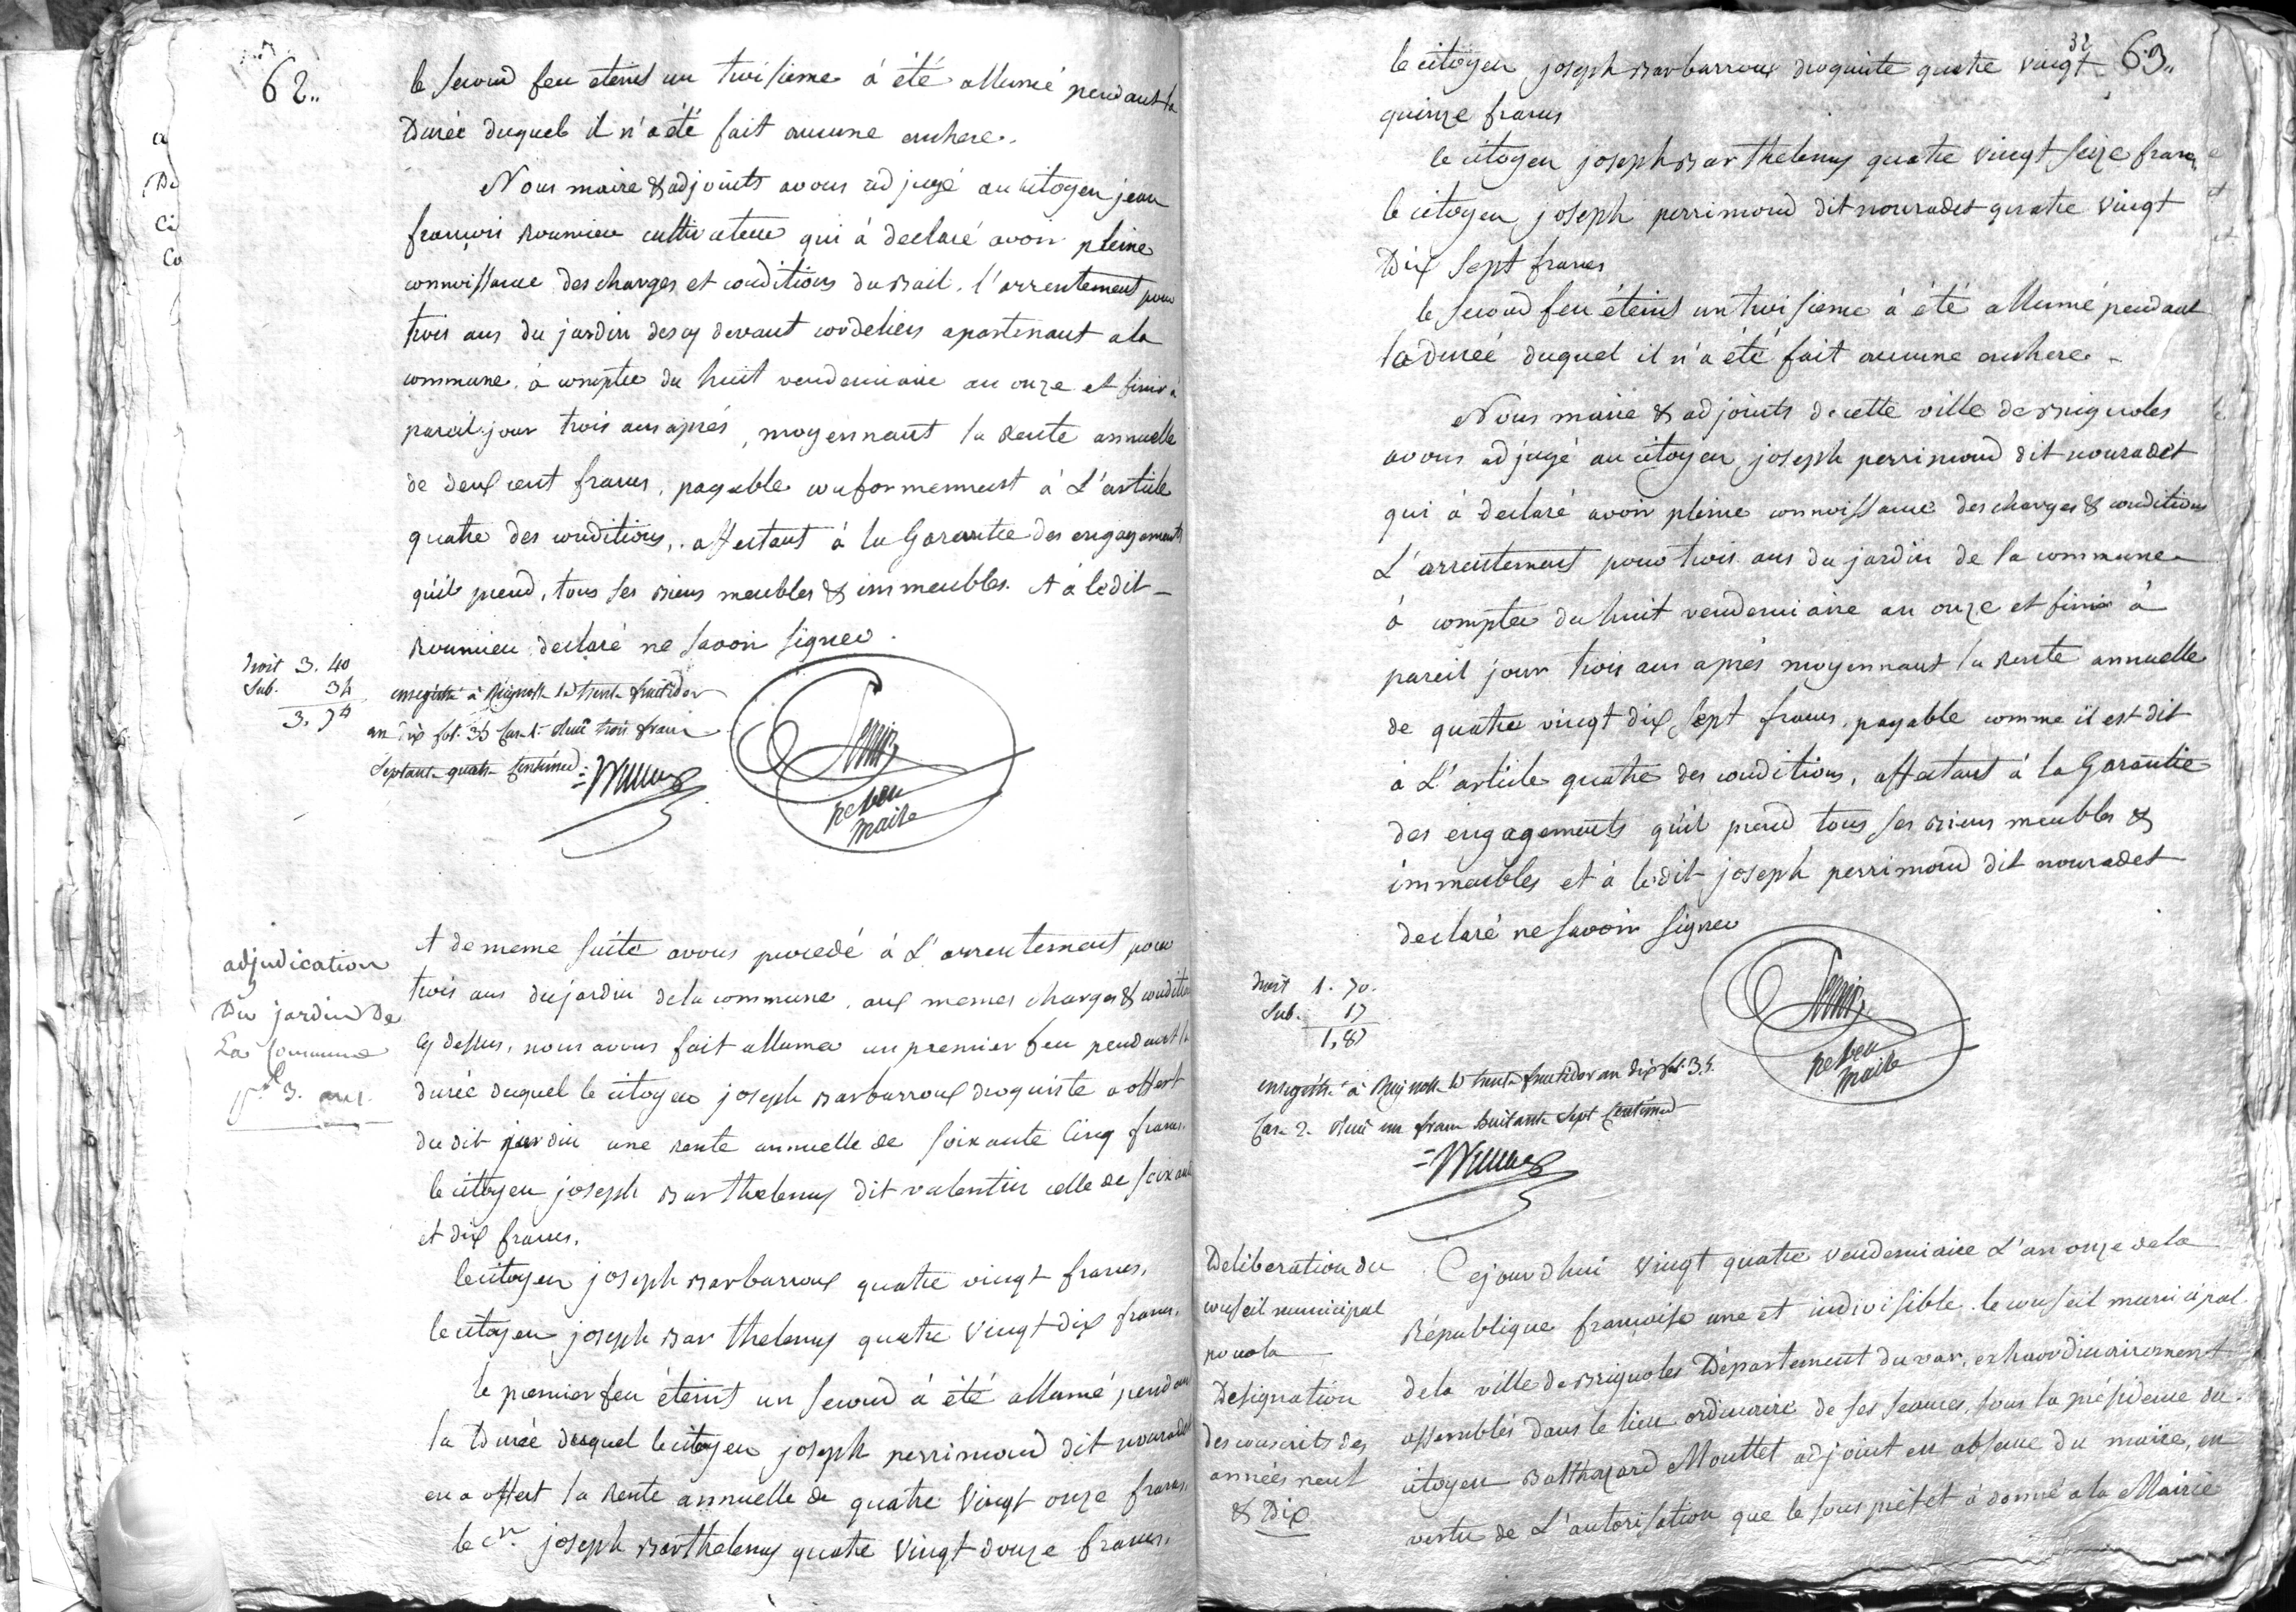 62..
le second feu eteint un troisieme à été allumé pendant la
Durée duquel il n'a été fait aucune enchere.
Nous maire & adjoints avons adjugé au citoyen jean
françois Roumieu cultivateur qui à declaré avoir pleine
connoissance des charges et conditions du Bail, l'arrentement pour
trois ans du jardin des cy devant cordeliers apartenant a la
commune, à compter du huit vendemiaire an onze et finir à
pareil jour trois ans aprés, moyennant la Rente annuelle
de deux cent francs, payable conformement à L'article
quatre des conditions, affectant à la Garantie des engagements
qu'il prend, tous ses Biens meubles & immeubles. et à ledit
Roumieu declaré ne savoir signer.
Droit 3. 40
Sub. 34
3. 74
enregistré à Brignolle le trente fructidor
an dix fol. 35 Case 1. Reçu trois francs
septante quatre centimes
Rebou
maire
adjudication
Du jardin De
La Commune
pr. 3. ans.
et de meme suite avons procedé à L'arrentement pour
trois ans du jardin de la commune, aux memes charges & conditions
cy dessus, nous avons fait allumer un premier feu pendant la
durée duquel le citoyen joseph Barbarroux droguiste a offert
du dit jardin une Rente annuelle de soixante Cinq francs.
le citoyen joseph Barthelemy dit valentin celle de soixante
et dix francs.
le citoyen joseph Barbarroux quatre vingt francs,
le citoyen joseph Barthelemy quatre vingt dix francs,
le premier feu éteint un second à été allumé pendant
la Durée duquel le citoyen joseph perrimond dit nouradet
en a offert la Rente annuelle de quatre Vingt onze francs,
le Cn. joseph Barthelemy quatre Vingt douze francs,
32
63..
le citoyen joseph Barbarroux droguiste quatre vingt
quinze francs
le citoyen joseph Barthelemy quatre vingt seize francs
le citoyen joseph perrimond dit nouradet quatre vingt
Dix sept francs
le second feu éteint un troisieme à été allumé pendant
la durée duquel il n'a été fait aucune enchere.
Nous maire & adjoints de cette ville de Brignoles
avons adjugé au citoyen joseph perrimond dit nouradet
qui à declaré avoir pleine connoissance des charges & conditions
L'arrentement pour trois ans du jardin de la commune
à compter du huit vendemiaire an onze et finir à
pareil jour trois ans aprés moyennant la Rente annuelle
de quatre vingt dix sept francs, payable comme il est dit
à L'article quatre des conditions, affectant à la Garantie
des engagements qu'il prend tous ses Biens meubles &
immeubles et à ledit joseph perrimond dit nouradet
declaré ne savoir signer
Droit 1. 70.
Sub. 17
1, 87
enregistré à Brignolle le trente fructidor an dix fol. 35.
Case 2. Reçu un franc huitante sept centimes
Rebou
maire
Deliberation du
conseil municipal
pour la
Designation
des conscrits des
années neuf
& Dix
Cejourd'hui vingt quatre Vendemiaire L'an onze de la
République françoise une et indivisible. le conseil municipal
de la ville de Brignoles Département du var, exhaordinairement
assemblés dans le lieu ordinaire de ses seances, sous la présidence du
citoyen Balthazard Mouttet adjoint en absence du maire, en
vertu de L'autorisation que le sous préfet à donné a la Mairie